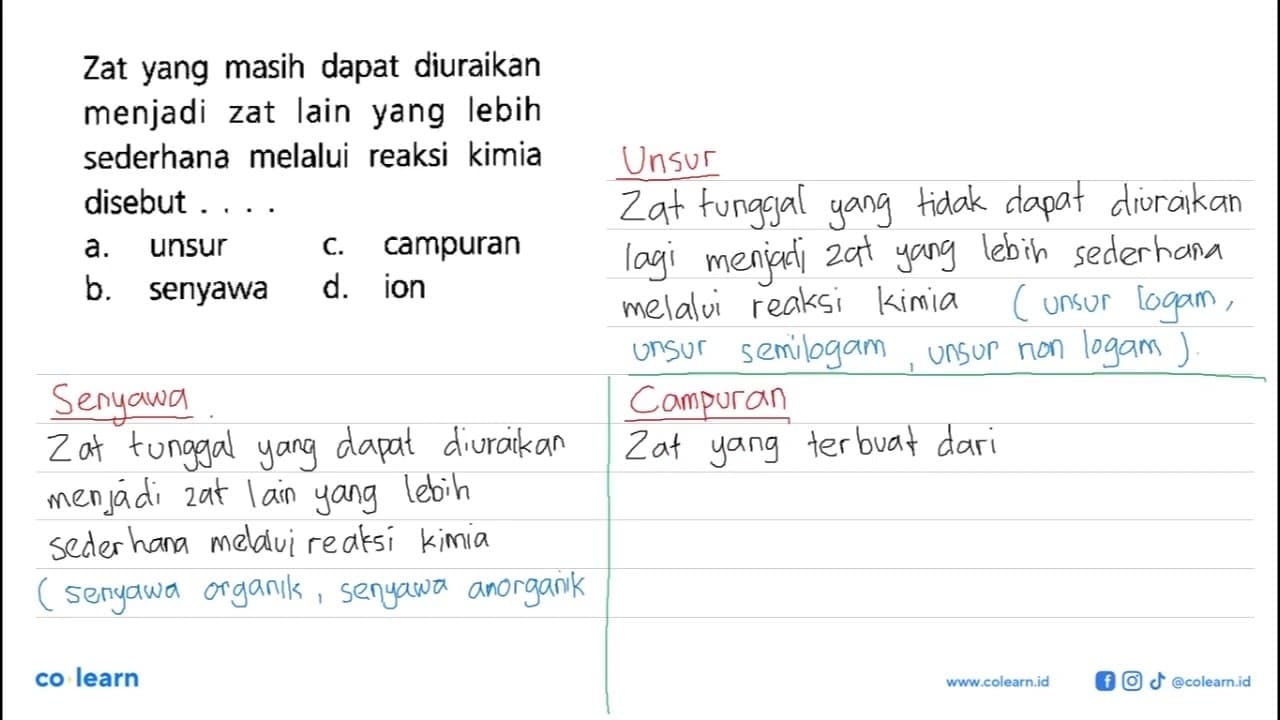 Zat yang masih dapat diuraikan
menjadi zat lain yang lebih
sederhana melalui reaksi kimia
disebut . . . .
a. unsur c. campuran
b. senyawa d. ion
Unsur
Zat tunggal yang tidak dapat diuraikan
lagi menjadi zat yang lebih sederhana
melalui reaksi kimia (unsur logam,
unsur semilogam, unsur non logam).
Senyawa
Zat tunggal yang dapat diuraikan
menjadi zat lain yang lebih
sederhana melalui reaksi kimia
(senyawa organik, senyawa anorganik
Campuran
Zat yang terbuat dari
co learn
www.colearn.id @colearn.id